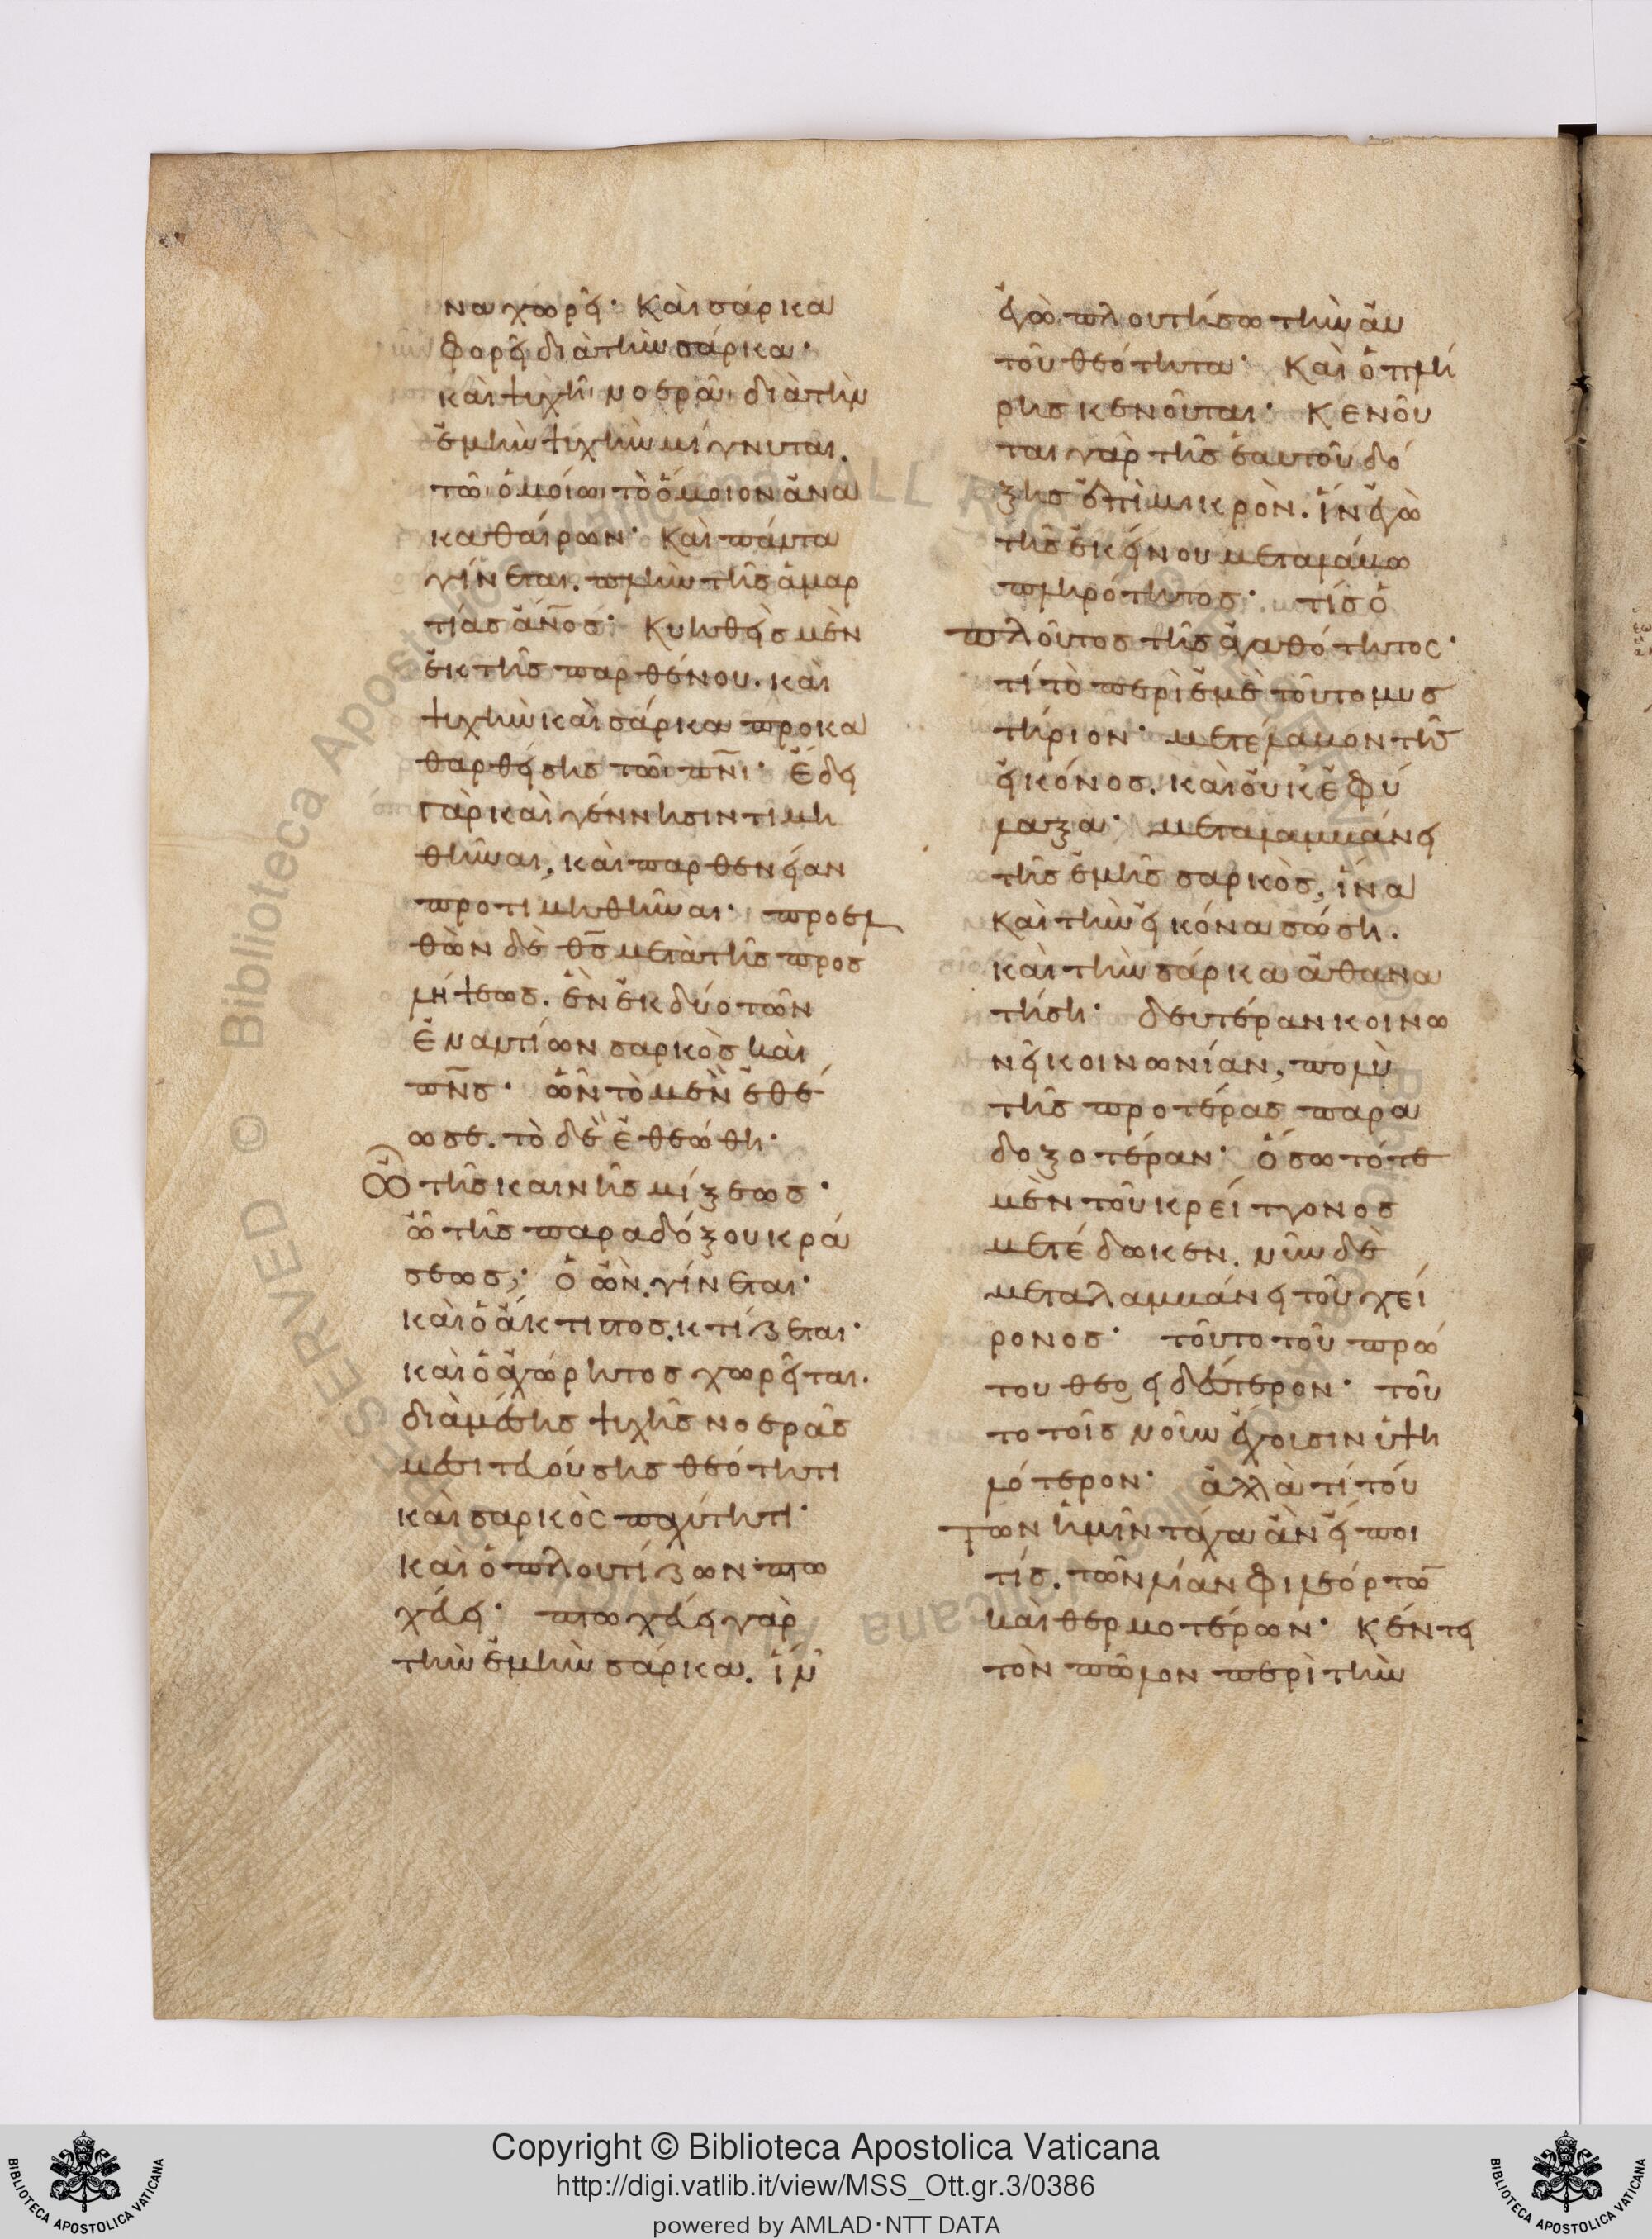 να χωρεῖ· Καὶ σάρκα
φορεῖ διὰ τὴν σάρκα·
καὶ ψυχῆι νοερᾶι διὰ τὴν
ἐμὴν ψυχὴν μίγνυται.
τῶι ὁμοίωι τὸ ὅμοιον ἀνα
καθαίρων· Καὶ πάντα
γίνεται. πλὴν τῆς ἁμαρ
τίας ἄν̅ο̅ς· Κυηθεὶς μὲν
ἐκ τῆς παρθένου. καὶ
ψυχὴν καὶ σάρκα προκα
θαρθείσης τῶι π̅ν̅ι· Ἔδει
γὰρ καὶ γέννησιν τιμη
θῆναι, καὶ παρθενείαν
προτιμηθῆναι· προελ
θὼν δὲ θ̅ς̅ μετὰ τῆς προσ
λήψεως. ἓν ἐκ δύο τῶν
ἐναντίων σαρκὸς καὶ
π̅ν̅ς· ὧν τὸ μὲν ἐθέ
ωσε. τὸ δὲ ἐθεώθη·
Ὢ τῆς καινῆς μίξεως·
ὢ τῆς παραδόξου κρά
σεως,· ὁ ὢν. γίνεται·
καὶ ὁ ἄκτιστος. κτίζεται·
καὶ ὁ ἀχώρητος χωρεῖται.
διὰ μέσης ψυχῆς νοερᾶς
μεσιτευούσης θεότητι
καὶ σαρκὸς παχύτητι·
καὶ ὁ πλουτίζων πτω
χεύει· πτωχεύει γὰρ
τὴν ἐμὴν σάρκα. ἵν'
ἐγὼ πλουτήσω τὴν αὐ
τοῦ θεότητα· Καὶ ὁ πλή
ρης κενοῦται· Κενοῦ
ται γὰρ τῆς ἑαυτοῦ δό
ξης ἐπὶ μικρὸν. ἵν' ἐγὼ
τῆς ἐκείνου μεταλάβω
πληρότητος· τίς ὁ
πλοῦτος τῆς ἀγαθότητος·
τί τὸ περὶ ἐμὲ τοῦτο μυσ
τήριον· μετέλαβον τῆς
εἰκόνος. καὶ οὐκ ἐφύ
λαξα· μεταλαμβάνει
τῆς ἐμῆς σαρκὸς, ἵνα
καὶ τὴν εἰκόνα σώση.
καὶ τὴν σάρκα ἀθανα
τίση· δευτέραν κοινω
νεῖ κοινωνίαν, πολὺ
τῆς προτέρας παρα
δοξοτέραν· ὅσω τότε
μὲν τοῦ κρείττονος
μετέδωκεν. νῦν δὲ
μεταλαμβάνει τοῦ χεί
ρονος· τοῦτο τοῦ πρώ
του θεοειδέστερον· τοῦ
το τοῖς νοῦν ἔχουσιν ὑψη
λότερον· ἀλλὰ τί τού
των ἡμῖν τάχα ἂν εἴποι
τίς. τῶν λίαν φιλεόρτων
καὶ θερμοτέρων· Κέντει
τὸν πῶλον περὶ τὴν
Copyright © Biblioteca Apostolica Vaticana
http://digi.vatlib.it/view/MSS_Ott.gr.3/0386
powered by AMLAD·NTT DATA
BIBLIOTECA APOSTOLICA VATICANA
BIBLIOTECA APOSTOLICA VATICANA